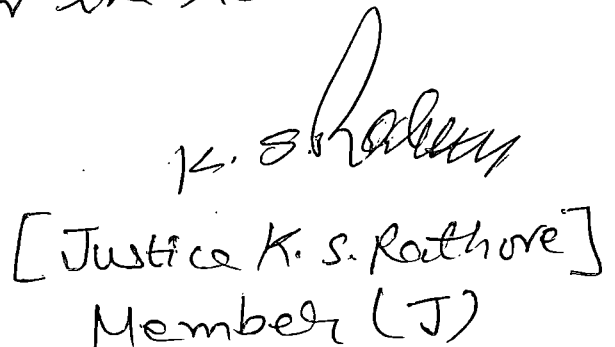 K. S. Rathore
[Justice K. S. Rathore]
Member (J)